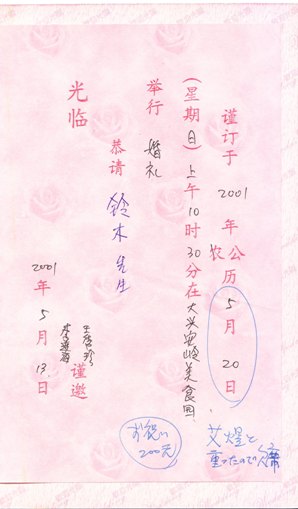 谨订于 2001 年 公农历 5 月 20 日
(星期日) 上午 10 时 30 分在大兴安岭美食园
举行 婚礼
恭请 鈴木 先生
光临
谨邀
2001 年 5 月 13 日
お祝い
200元
艾煌と
重ったので欠席